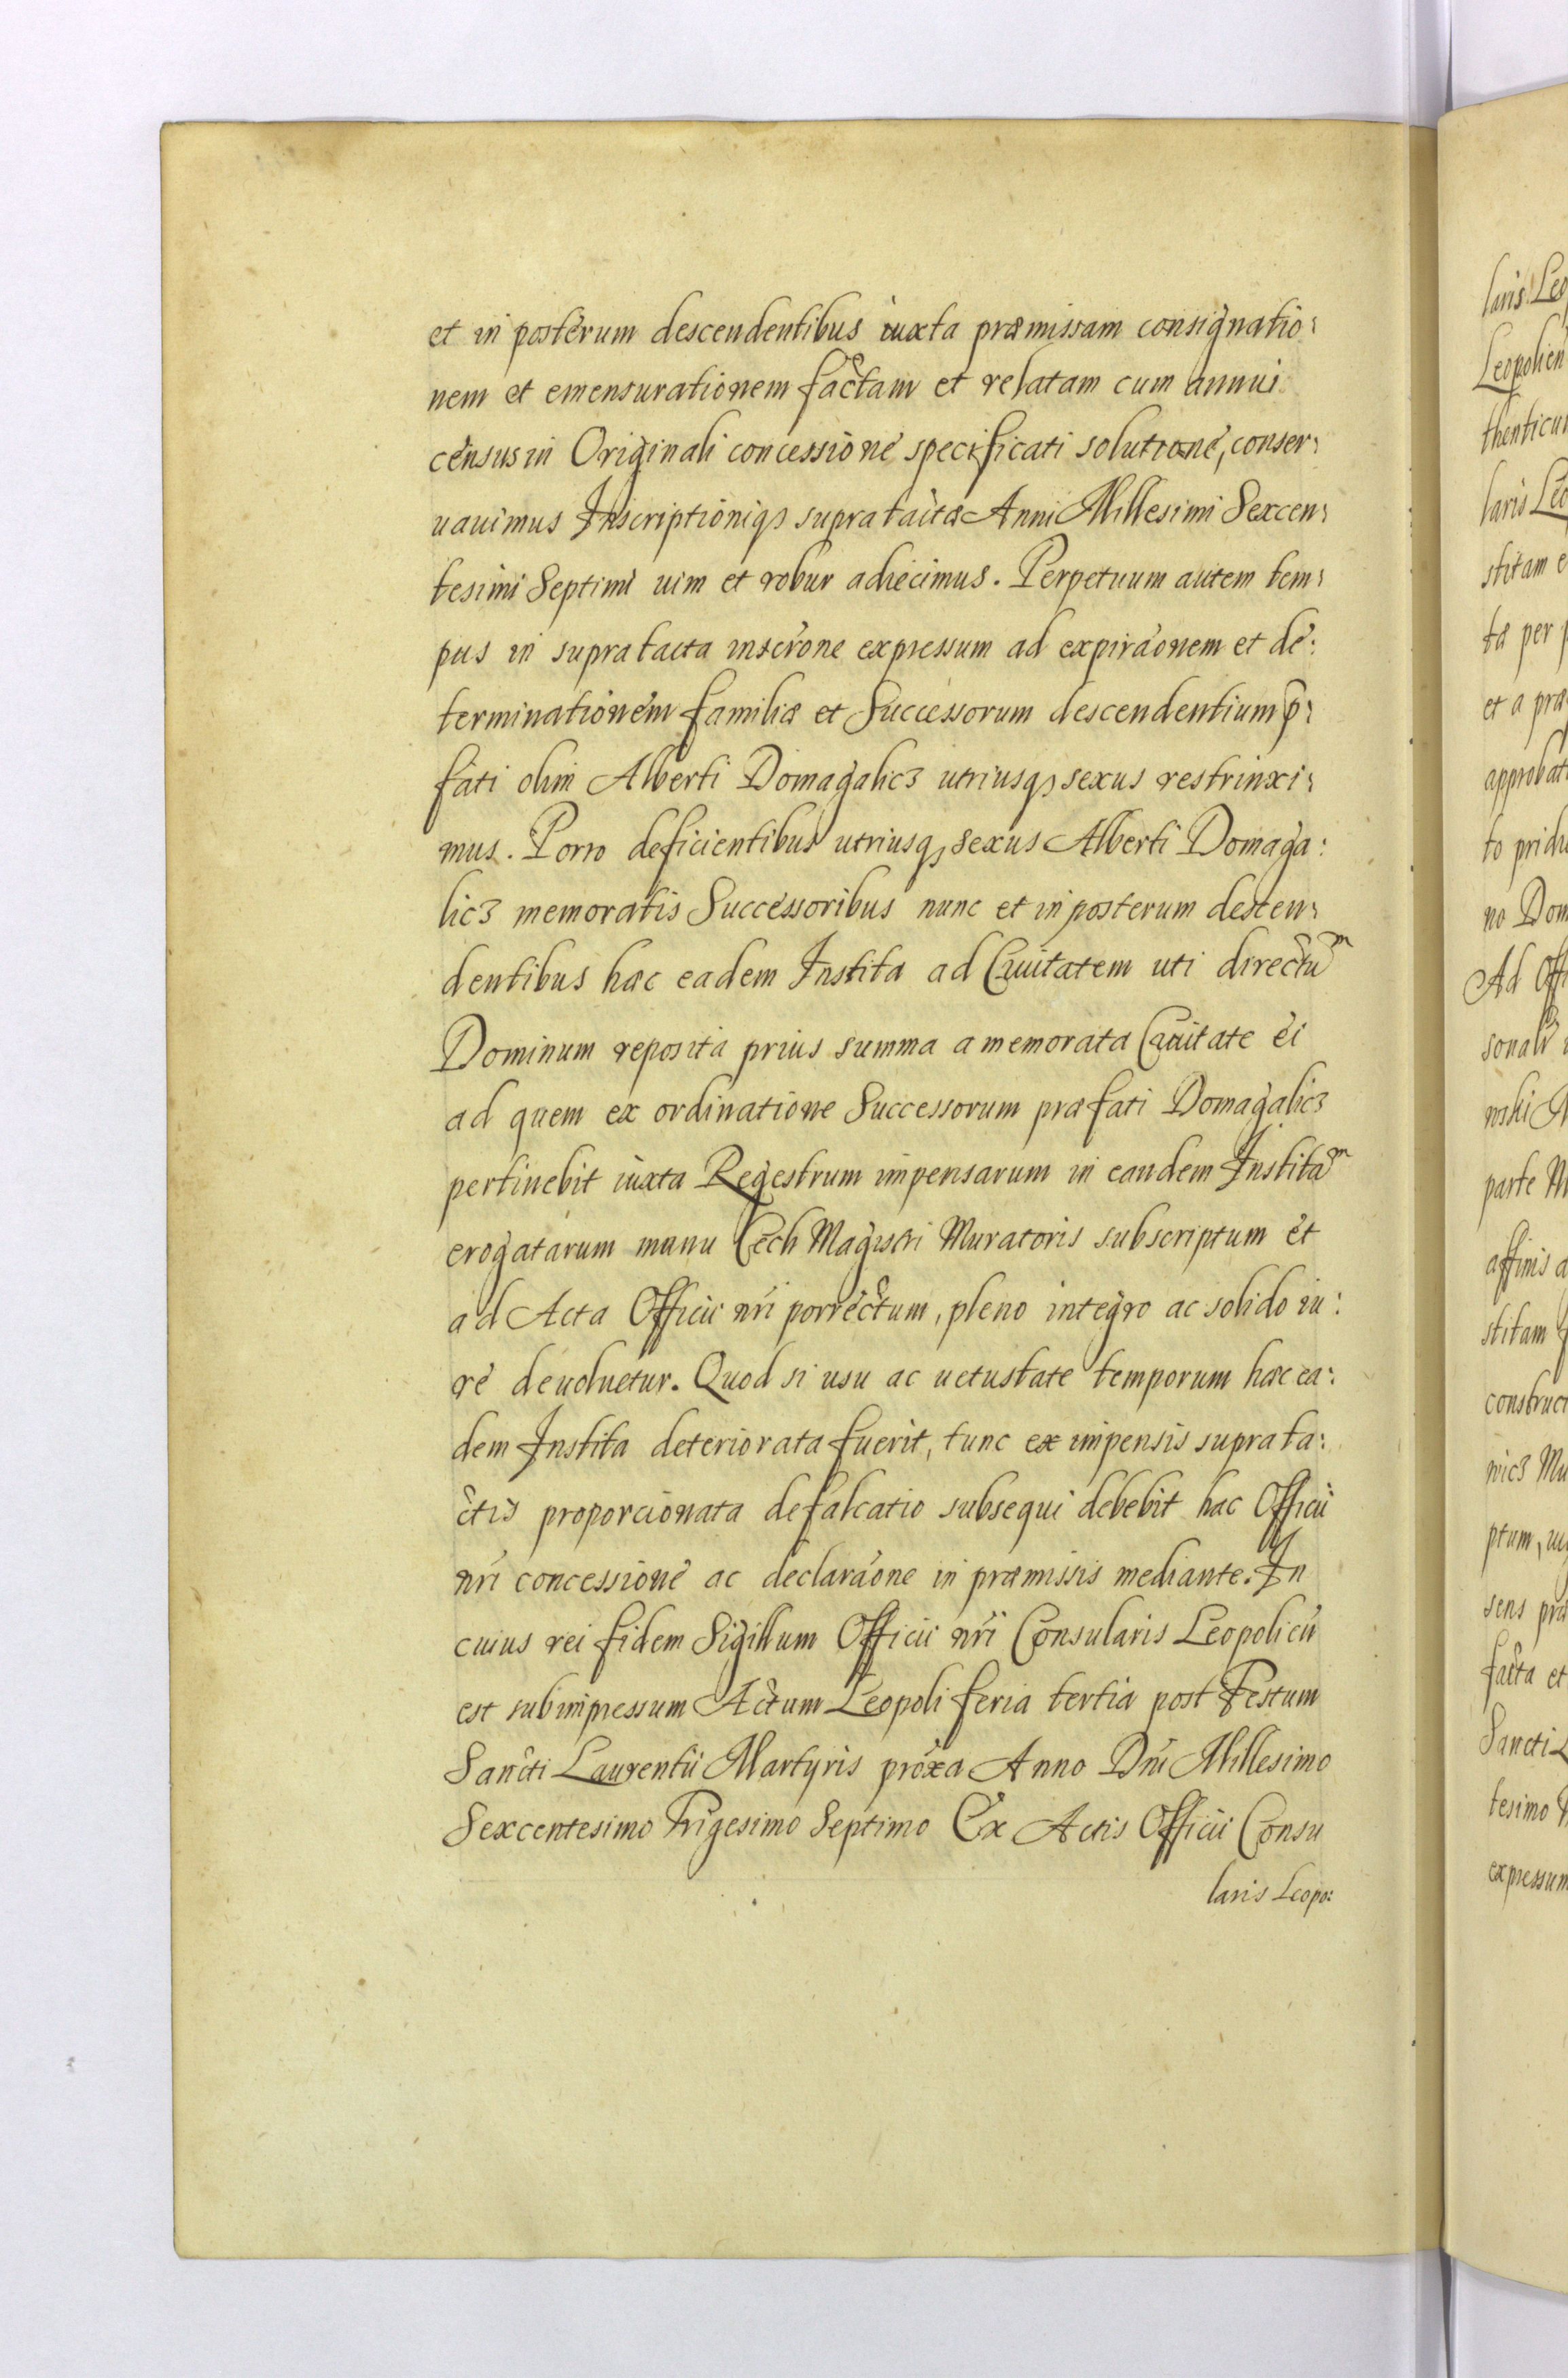 et in posterum descendentibus iuxta præmissam consignatio:
nem et emensurationem factam et relatam cum annui
census in Originali concessione specificati solutione, conser:
uauimus Inscriptioniq3 supratactæ Anni Millesimi Sexcen:
tesimi Septimi uim et robur adiecimus. Perpetuum autem tem:
pus in supratacta inscrõne expressum ad expirãonem et de:
terminationem familiæ et Successorum descendentium p̃:
fati olim Alberti Domagalicz utriusq3 sexus restrinxi:
mus. Porro deficientibus utriusq3 sexus Alberti Domaga:
licz memoratis Successoribus nunc et in posterum descen:
dentibus hæc eadem Instita ad Ciuitatem uti directũ
Dominum reposita prius summa a memorata Ciuitate ei
ad quem ex ordinatione Successorum præfati Domagalicz
pertinebit iuxta Regestrum impensarum in eandem Institã
erogatarum manu Cech Magistri Muratoris subscriptum et
ad Acta Officii nr̃i porrectum, pleno integro ac solido iu:
re deuoluetur. Quod si usu ac uetustate temporum hæc ea:
dem Instita deteriorata fuerit, tunc ex impensis suprata:
ctis proporcionata defalcatio subsequi debebit hac Officii
nr̃i concessione ac declarãone in præmissis mediante. In
cuius rei fidem Sigillum Officii nr̃i Consularis Leopolien̄
est subimpressum Actum Leopoli feria tertia post Festum
Sancti Laurentii Martyris prõxa Anno Dn̄i Millesimo
Sexcentesimo Trigesimo Septimo Ex Actis Officii Consu
laris Leopo:
laris Leo
Leopolien
thenticu
laris Leo
stitam e
tæ per p
et a præ
approbat
to pridi
no Dom
Ad Offi
sonali
parte M
affinis a
stitam
construct
nicz Mu
ptum, ui
sens præ
facta et
Sancti L
tesimo
expressum